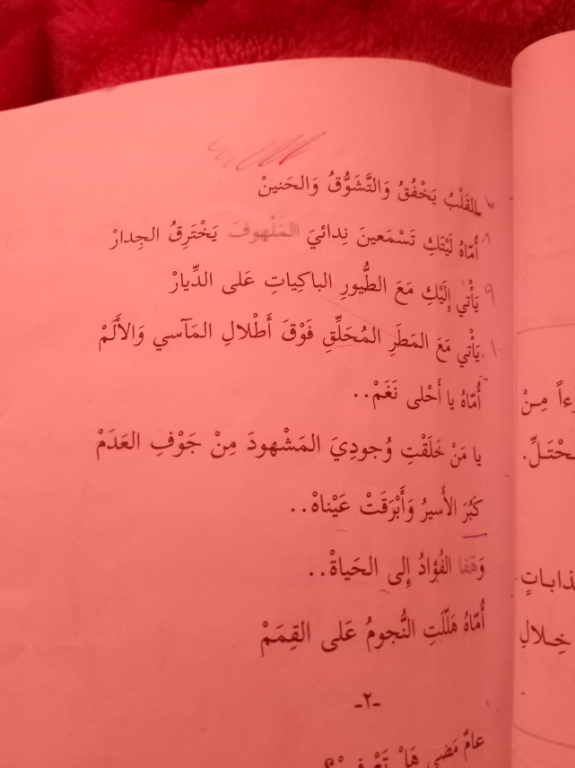 ٧ القَلْبُ يَخْفُقُ وَالتَّشَوُّقُ وَالحَنينْ
٨ أُمّاهُ لَيْتَكِ تَسْمَعينَ نِدائيَ المَلْهوفَ يَخْتَرِقُ الجِدارْ
٩ يَأْتي إِلَيْكِ مَعَ الطُّيورِ الباكِياتِ عَلى الدِّيارْ
١٠ يَأْتي مَعَ المَطَرِ المُحَلِّقِ فَوْقَ أَطْلالِ المَآسي وَالأَلَمْ
أُمّاهُ يا أَحْلى نَغَمْ..
يا مَنْ خَلَقْتِ وُجودِيَ المَشْهودَ مِنْ جَوْفِ العَدَمْ
كَبُرَ الأَسيرُ وَأَبْرَقَتْ عَيْناهْ..
وَهَفا الفُؤادُ إِلى الحَياةْ..
أُمّاهُ هَلَّلَتِ النُّجومُ عَلى القِمَمْ
-٢-
عامٌ مَضى هَلْ
مِنْ
خِلالِ